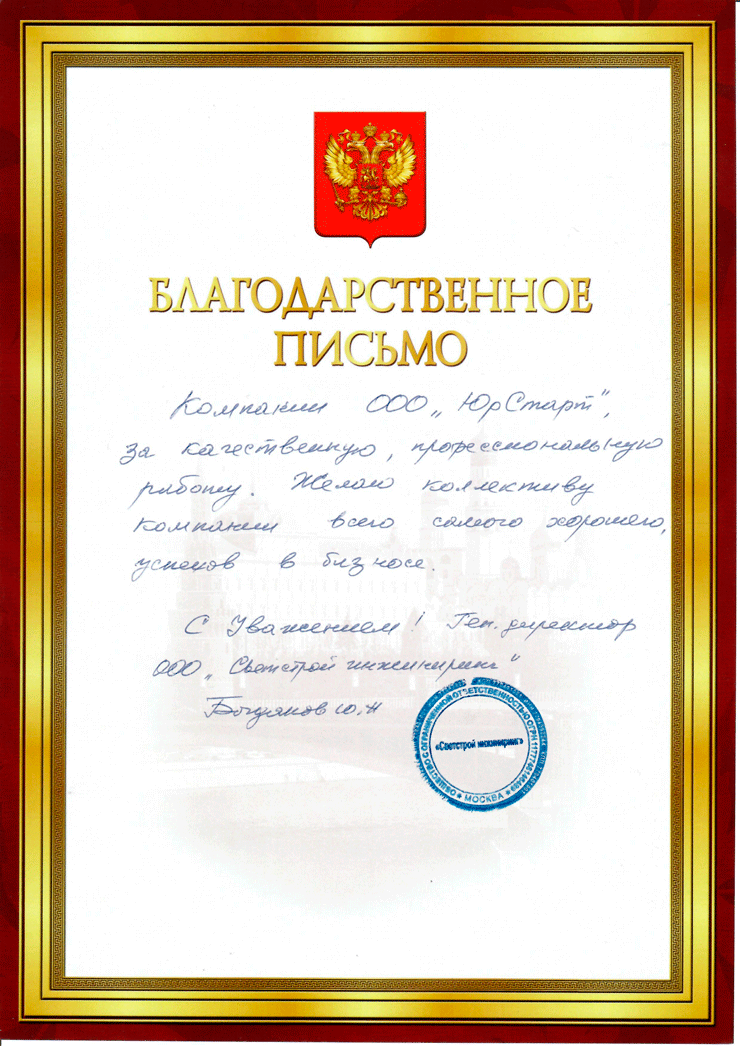 БЛАГОДАРСТВЕННОЕ
ПИСЬМО
Компании ООО „ЮрСтарт",
за качественную, профессиональную
работу. Желаю коллективу
компании всего самого хорошего,
успехов в бизнесе.
С Уважением! Ген. директор
ООО „Светстрой инжиниринг"
Ю.Н
ОБЩЕСТВО С ОГРАНИЧЕННОЙ ОТВЕТСТВЕННОСТЬЮ ОГРН
«Светстрой инжиниринг»
* МОСКВА *